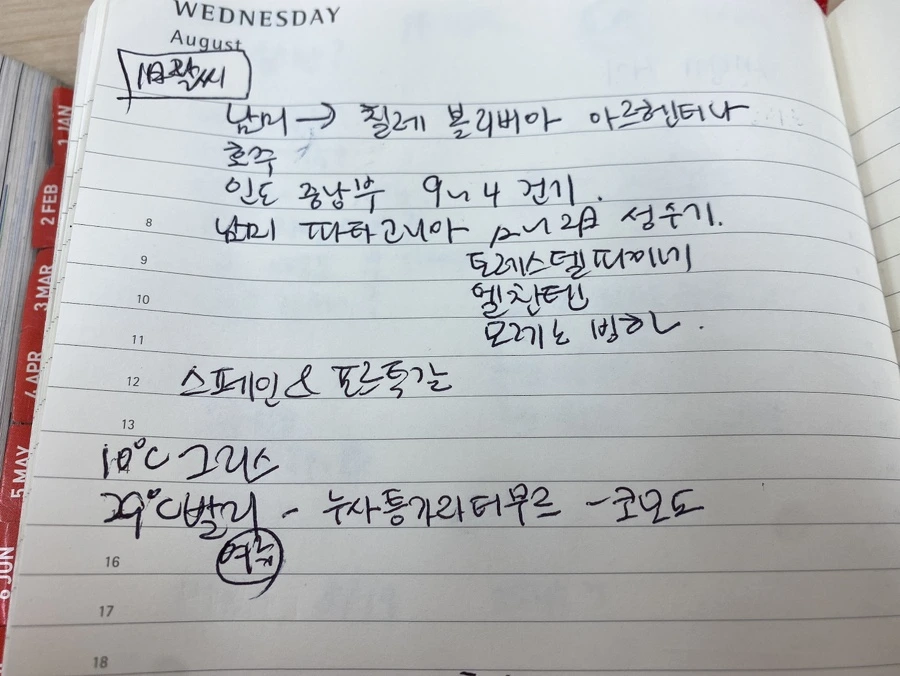 WEDNESDAY
August
1월날씨
남미 → 칠레 볼리비아 아르헨티나
호주
인도 중남부 9~4 건기.
8 남미 파타고니아 12~2월 성수기.
9 토레스델파이네
10 엘찬텐
11 모레노 빙하.
12 스페인 & 포르투갈
13
10°C 그리스
29°C 발리 - 누사틍가라터무르 - 코모도
16
17
18
1 JAN
2 FEB
3 MAR
4 APR
5 MAY
6 JUN